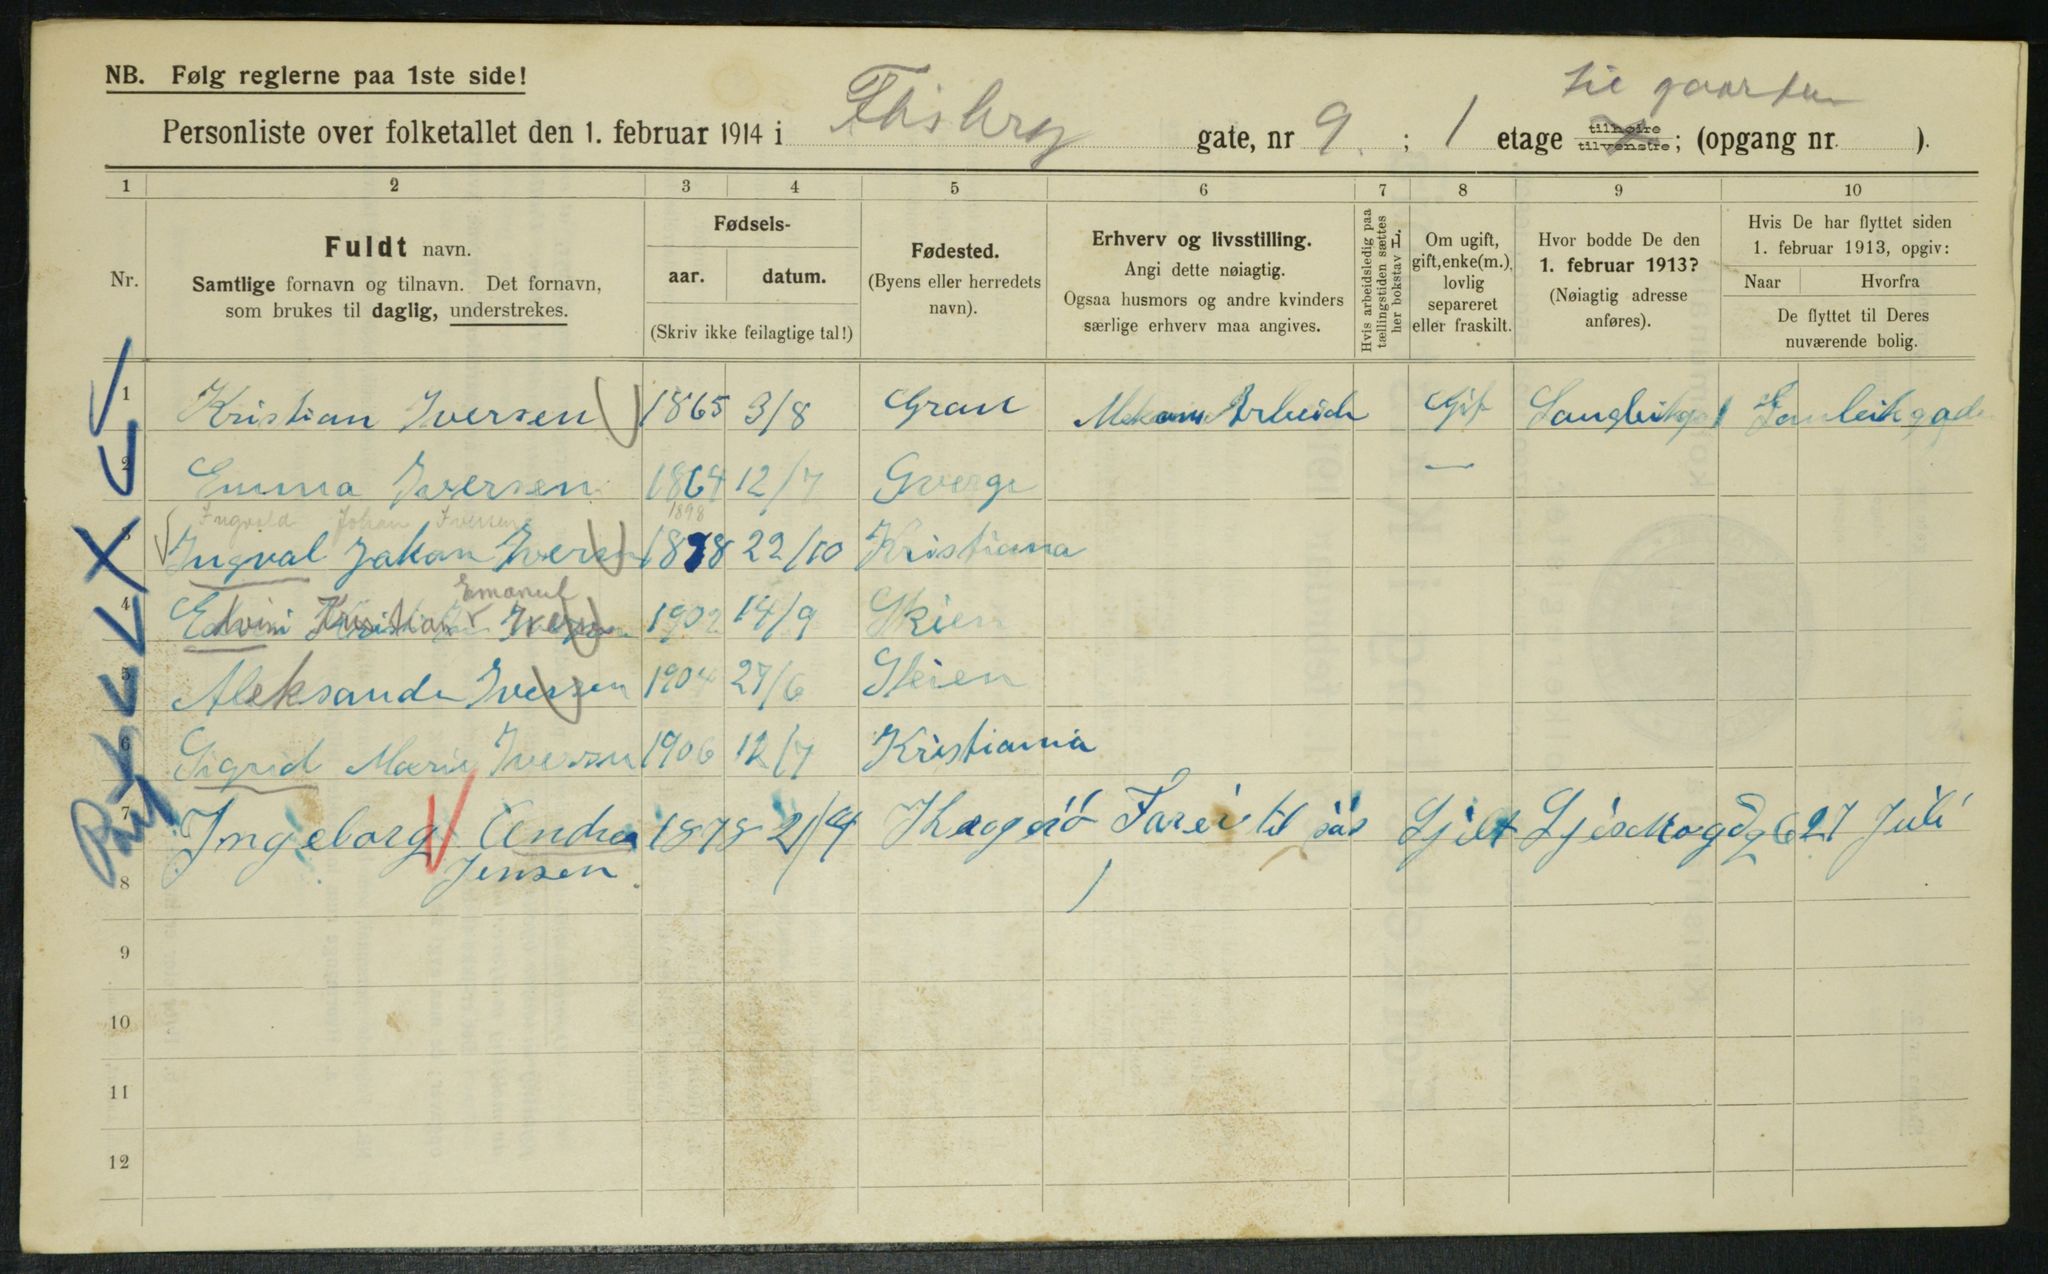 NB. Følg reglerne paa 1ste side!
til gaarden
Personliste over folketallet den 1. februar 1914 i gate, nr 9. ; 1 etage tilhøire tilvenstre; (opgang nr. ).
1 2 3 4 5 6 7 8 9 10
Nr.
Fuldt navn.
Samtlige fornavn og tilnavn. Det fornavn,
som brukes til daglig, understrekes.
Fødsels-
aar. datum.
(Skriv ikke feilagtige tal!)
Fødested.
(Byens eller herredets
navn).
Erhverv og livsstilling.
Angi dette nøiagtig.
Ogsaa husmors og andre kvinders
særlige erhverv maa angives.
Hvis arbeidsledig paa
tællingstiden sættes
her bokstav L.
Om ugift,
gift, enke(m.),
lovlig
separeret
eller fraskilt.
Hvor bodde De den
1. februar 1913?
(Nøiagtig adresse
anføres).
Hvis De har flyttet siden
1. februar 1913, opgiv:
Naar Hvorfra
De flyttet til Deres
nuværende bolig.
1 Kristian Iversen 1865 3/8 Gran Arbeide Gift
2 Emma Iversen 1864 12/7 Sverge —
Ingvald Johan Iversen 1898
3 Ingval Jakan Iversen 1898 22/10 Kristiana
Emanuel
4 Edvin Kristian Iversen 1902 14/9 Skien
5 Aleksander Iversen 1904 27/6 Skien
6 Sigrid Marie Iversen 1906 12/7 Kristiania
7 Ingeborg Andrea 1878 21/4 27 Juli
8 Jensen
9
10
11
12